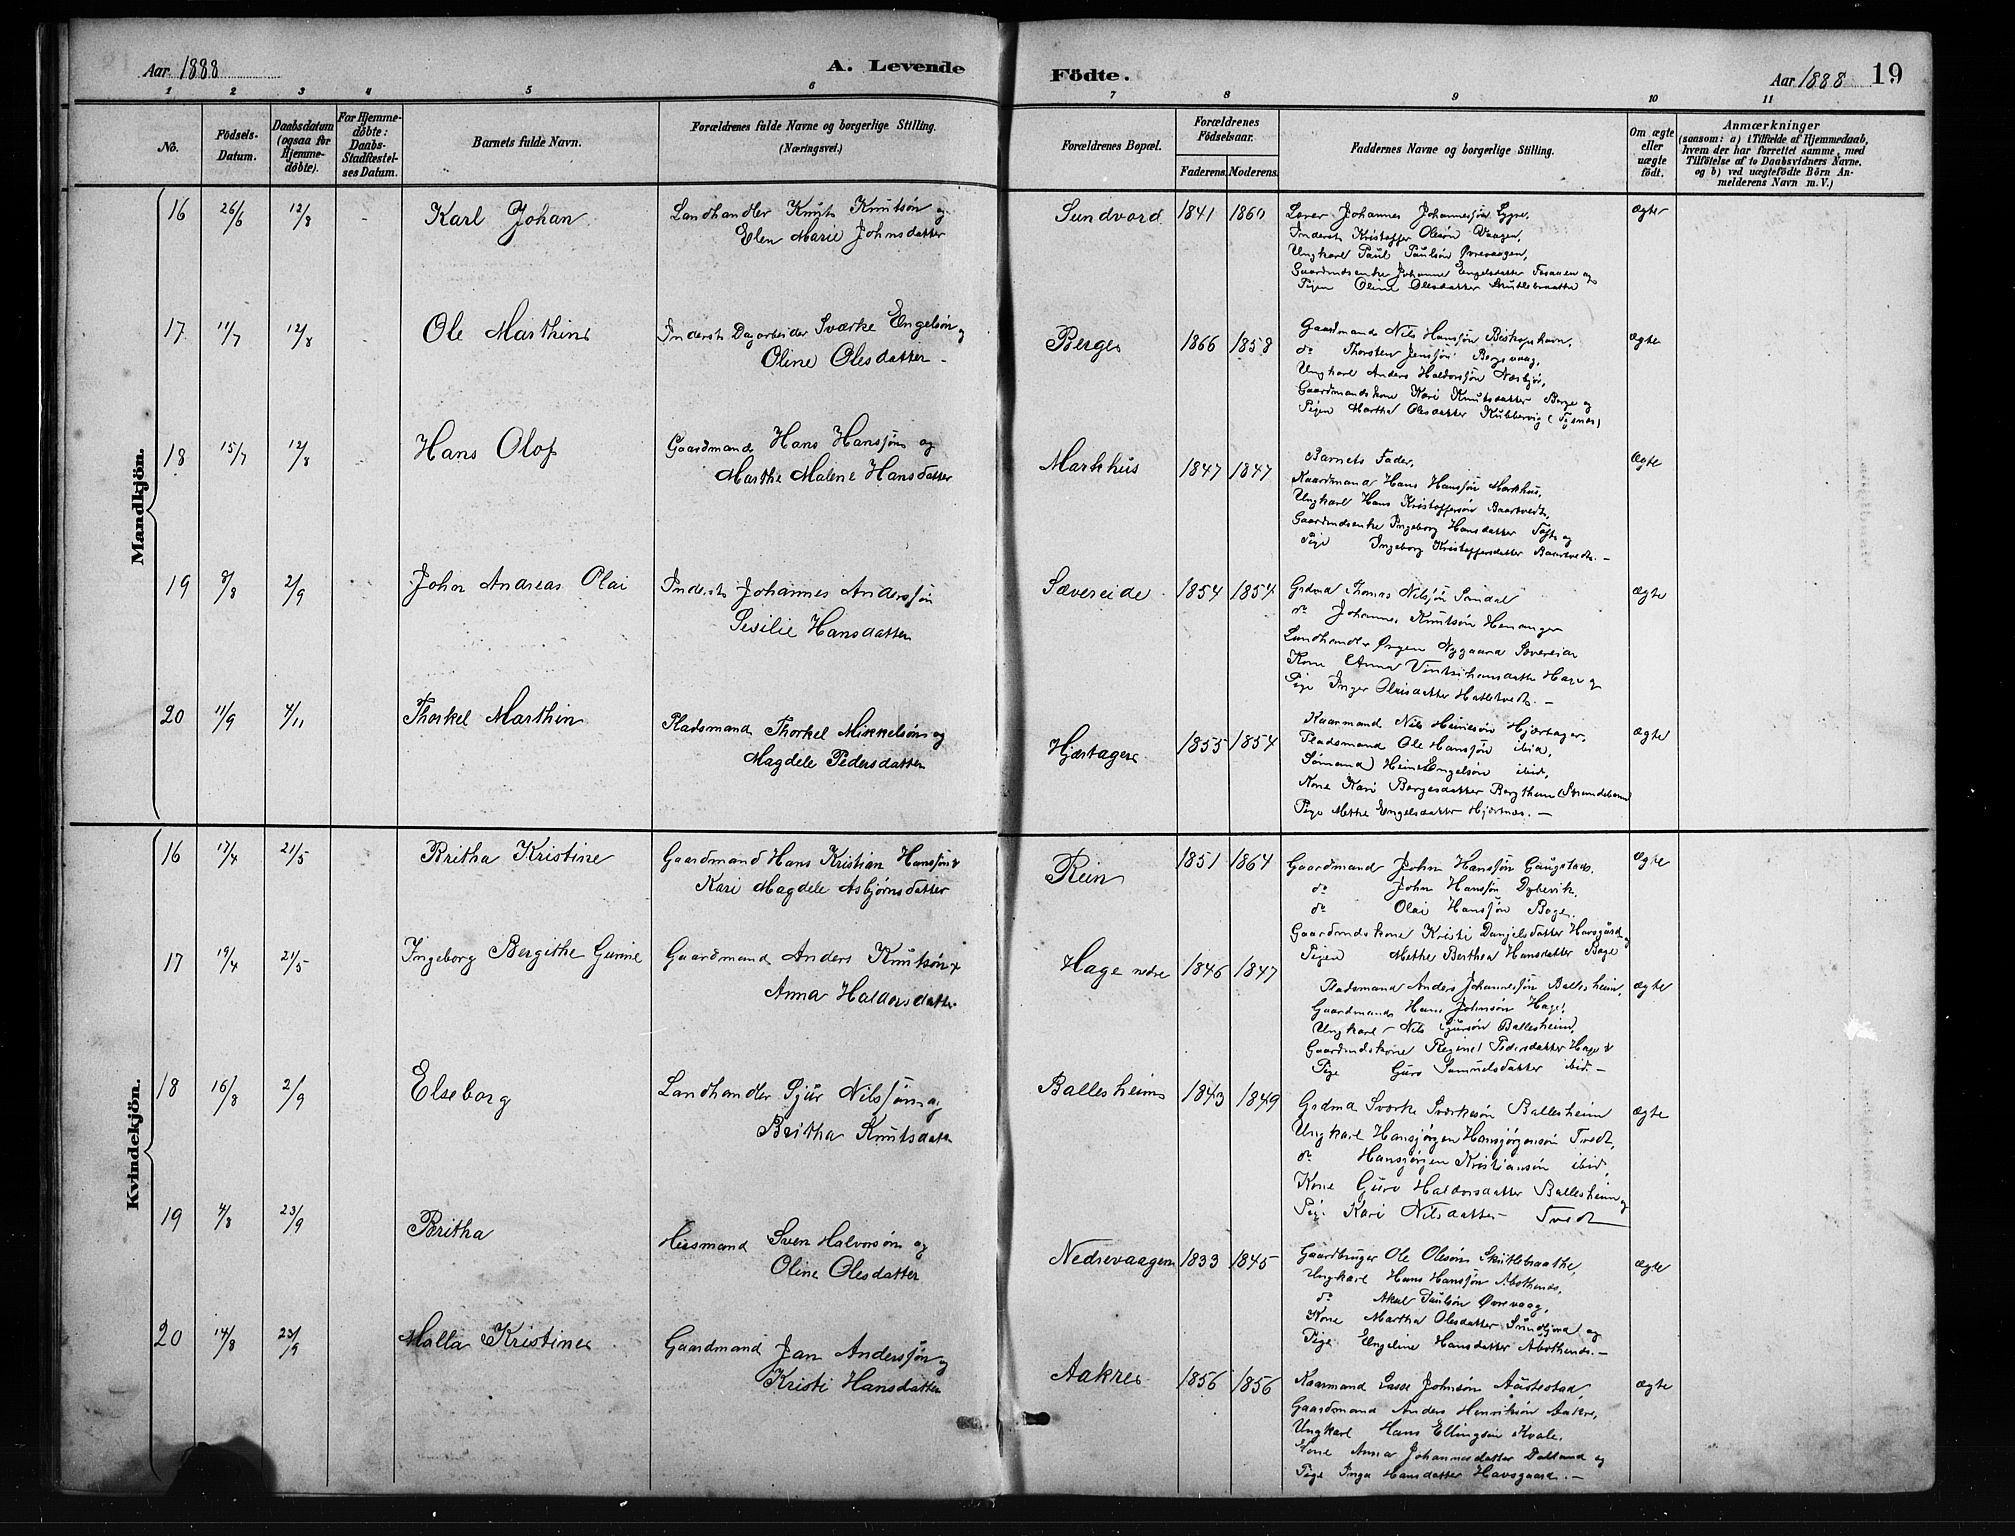 Aar 1888
A. Levende
Födte.
Aar 1888
19
1 2 3 4 5 6 7 8 9 10 11
No.
Födsels-Datum.
Daabsdatum (ogsaa for Hjemmedöbte).
For Hjemmedöbte: Daabs-Stadfæstelses Datum.
Barnets fulde Navn.
Forældrenes fulde Navne og borgerlige Stilling.
(Næringsvei.)
Forældrenes Bopæl.
Forældrenes Födselsaar.
Faderens. Moderens.
Faddernes Navne og borgerlige Stilling.
Om ægte eller uægte födt.
Anmærkninger
(saasom: a) i Tilfælde af Hjemmedaab, hvem der har forrettet samme, med Tilföielse af to Daabsvidners Navne, og b) ved uægtefödte Börn Anmelderens Navn m. V.)
Mandkjön.
16 26/6 12/8 - Karl Johan
Landhandler Knut Knutsøn og
Elen Marie Johnsdatter
Sundvord 1841 1860
Lærer Johannes Johannessøn
Inderst Kristoffer Olesøn Vaagen,
Ungkarl Paul Paulsøn Øvrevaagen,
Gaardmdsenke Johanne Engelsdatter og
Pigen Oline Olesdatter
ægte
17 11/7 12/8 Ole Marthin
Inderst Dagarbeider Sværke Engelsøn og
Oline Olesdatter -
Berge 1866 1858
Gaardmand Nils Hanssøn Biskophavn,
do Thorsten Jenssøn Bergsvaag,
Ungkarl Anders Haldorssøn Næsbjø,
Gaardmandskone Kari Knutsdatter Berge og
Pigen Martha Olesdatter Kubbervig (Tysnæs)
ægte
18 15/7 12/8 Hans Olof
Gaardmand Hans Hanssøn og
Marthe Malene Hansdatter
Markhus 1847 1847
Barnets Fader,
Kaardmand Hans Hanssøn Markhus,
Ungkarl Hans Kristoffersøn Baartvedt,
Gaardmdsenke Ingeborg Hansdatter Tofte og
Pige Ingeborg Kristoffersdatter Baartvedt. -
ægte
19 8/8 2/9 John Andreas Olai
Inderst Johannes Anderssøn
Sesilie Hansdatter
Sævereide 1854 1854
Grdmd Thomas Nilssøn Sandal
do Johannes Knutsøn Henanger
Landhandler Ørgen Nygaard Sævereide
Kone Anna Hage og
Pige Inger Olaisdatter Hatletvedt. -
ægte
20 11/9 4/11 Thorkel Marthin
Pladsmand Thorkel Mikkelsøn og
Magdele Pedersdatter
Hjærtager 1855 1854
Kaarmand Nils Heinesøn Hjærtager,
Pladsmand Ole Hanssøn ibid,
Sømand Heine Engelsøn ibid,
Kone Kari Børgesdatter Bergthun (Strandebarm)
Pige Mette Engelsdatter Hjærtnæs. -
ægte
Kvindekjön.
16 17/4 21/5 Britha Kristine
Gaardmand Hans Kristian Hanssøn &
Kari Magdele Asbjørnsdatter
Rein 1851 1864
Gaardmand John Hanssøn Gaugstad,
do John Hanssøn Dybevik,
do Olai Hanssøn Bage,
Gaardmdskone Kristi Danjelsdatter Havsgård og
Pigen Methe Berthea Hansdatter Bage
ægte
17 19/4 21/5 Ingeborg Bergithe Gurine
Gaardmand Anders Knutsøn &
Anna Haldorsdatter
Hage nedre 1846 1847
Pladsmand Anders Johannessøn Ballesheim,
Gaardmand Hans Johnsøn Hage,
Ungkarl Nils Gjursøn Ballesheim,
Gaardmdskone Regine Pedersdatter Hage &
Pige Guro Samuelsdatter ibid. -
ægte
18 16/8 2/9 Elseborg
Landhandler Sjur Nilssøn og
Britha Knutsdatter
Ballesheim 1843 1849
Grdmd Sværke Sværkesøn Ballesheim
Ungkarl Hansjørgen Hansjørgensøn Tvedt,
do Hansjørgen Kristiansøn ibid,
Kone Guro Haldorsdatter Ballesheim og
Pige Kari Nilsdatter Tvedt
ægte
19 4/8 23/9 Britha
Husmand Sven Halvorsøn og
Oline Olesdatter
Nedrevaagen 1833 1845
Gaardbruger Ole Olesøn Skutlebraathe,
Ungkarl Hans Hanssøn Abothnæs,
do Aksel Paulsøn Øvrevaag,
Kone Martha Olesdatter Sundfjord og
Pige Engeline Hansdatter Abothnæs. -
ægte
20 14/8 23/9 Malla Kristine
Gaardmand Jan Anderssøn og
Kristi Hansdatter
Aakre 1856 1856
Kaarmand Lasse Johnsøn
Gaardmand Anders Henriksøn Aakre,
Ungkarl Hans Ellingsøn Kvale,
Kone Anna Johannesdatter Dalland og
Pige Inga Hansdatter Havsgaard. -
ægte